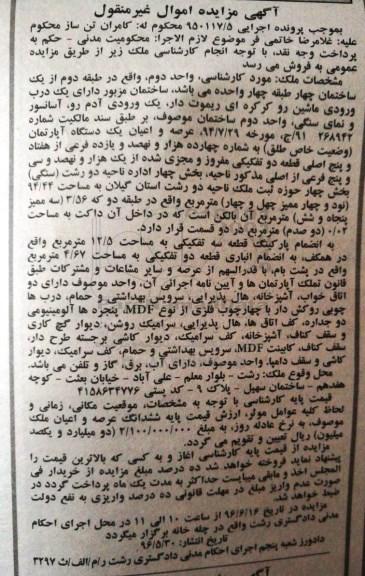 آگهی مزایده اموال غیرمنقول
بموجب پرونده اجرایی ۹۵۰۱۱۷/۵ محکوم له: کامران تن ساز محکوم
علیه: غلامرضا خاتمی فر موضوع لازم الاجرا: محکومیت مدنی - حکم به
پرداخت وجه نقد، با توجه انجام کارشناسی ملک زیر از طریق مزایده
عمومی به فروش می رسد
مشخصات ملک: مورد کارشناسی، واحد دوم، واقع در طبقه دوم از یک
ساختمان چهار طبقه چهار واحده می باشد، ساختمان مزبور دارای یک درب
ورودی ماشین رو کرکره ای ریموت دار، یک ورودی آدم رو، آسانسور
و نمای سنگی، واحد دوم ساختمان موصوف، بر طبق سند مالکیت شماره
۲۶۸۹۴۲ ۹۱/ج، مورخه ۹۴/۷/۲۹، عرصه و اعیان یک دستگاه آپارتمان
(وضعیت خاص طلق) به شماره چهارده هزار و نهصد و یازده فرعی از هفتاد
و پنج اصلی قطعه دو تفکیکی مفروز و مجزی شده از یک هزار و نهصد و سی
و پنج فرعی از اصلی مذکور ناحیه، بخش چهار اداره ناحیه دو رشت (سنگی)
بخش چهار حوزه ثبت ملک ناحیه دو رشت استان گیلان به مساحت ۹۴/۴۴
(نود و چهار ممیز چهل و چهار) مترمربع واقع در طبقه دو که ۳/۵۶ (سه ممیز
پنجاه و شش) مترمربع آن بالکن است که در داخل آن داکت به مساحت
۰/۰۲ (دو صدم) مترمربع در دو قسمت قرار دارد.
به انضمام پارکینگ قطعه سه تفکیکی به مساحت ۱۲/۵ مترمربع واقع
در همکف، به انضمام انباری قطعه دو تفکیکی به مساحت ۴/۶۷ مترمربع
واقع در پشت بام، با قدرالسهم از عرصه و سایر مشاعات و مشترکات طبق
قانون تملک آپارتمان ها و آیین نامه اجرائی آن، واحد موصوف دارای دو
اتاق خواب، آشپزخانه، هال پذیرایی، سرویس بهداشتی و حمام، درب ها
چوبی روکش دار با چهارچوب فلزی از نوع MDF، پنجره ها آلومینیومی
دو جداره، کف اتاق ها، هال پذیرایی، سرامیک روشن، دیوار گچ کاری
و سقف کناف، آشپزخانه، کف سرامیک، دیوار کاشی برجسته طرح دار،
سقف کناف، کابینت MDF، سرویس بهداشتی و حمام، کف سرامیک، دیوار
کاشی و سقف دامپا. واحد موصوف، دارای آب، برق، گاز و تلفن می باشد.
محل وقوع ملک: رشت - بلوار معلم - علی آباد - خیابان بعثت - کوچه
هفدهم - ساختمان سهیل - پلاک ۹ - کد پستی ۴۱۵۸۶۳۴۷۷۶
قیمت پایه کارشناسی با توجه به مشخصات، موقعیت مکانی، زمانی و
لحاظ کلیه عوامل موثر، ارزش قیمت پایه ششدانگ عرصه و اعیان ملک
موصوف، به نرخ عادله روز، به مبلغ ۲/۱۰۰/۰۰۰/۰۰۰ (دو میلیارد و یکصد
میلیون) ریال تعیین و تقویم می گردد.
مزایده از قیمت پایه کارشناسی آغاز و به کسی که بالاترین قیمت را
پیشنهاد نماید فروخته خواهد شد ده درصد مبلغ مزایده از خریدار فی
المجلس اخذ و مابقی میبایست حداکثر به مدت یک ماه پرداخت گردد در
صورت عدم واریز مبلغ در مهلت قانونی ده درصد واریزی به نفع دولت
ضبط خواهد شد.
مزایده در تاریخ ۹۶/۶/۱۶ از ساعت ۱۰ الی ۱۱ در محل اجرای احکام
مدنی دادگستری رشت واقع در چله خانه برگزار میگردد
تاریخ انتشار: ۹۶/۵/۳۰
دادورز شعبه پنجم اجرای احکام مدنی دادگستری رشت ر/م/الف/ث ۳۲۹۷